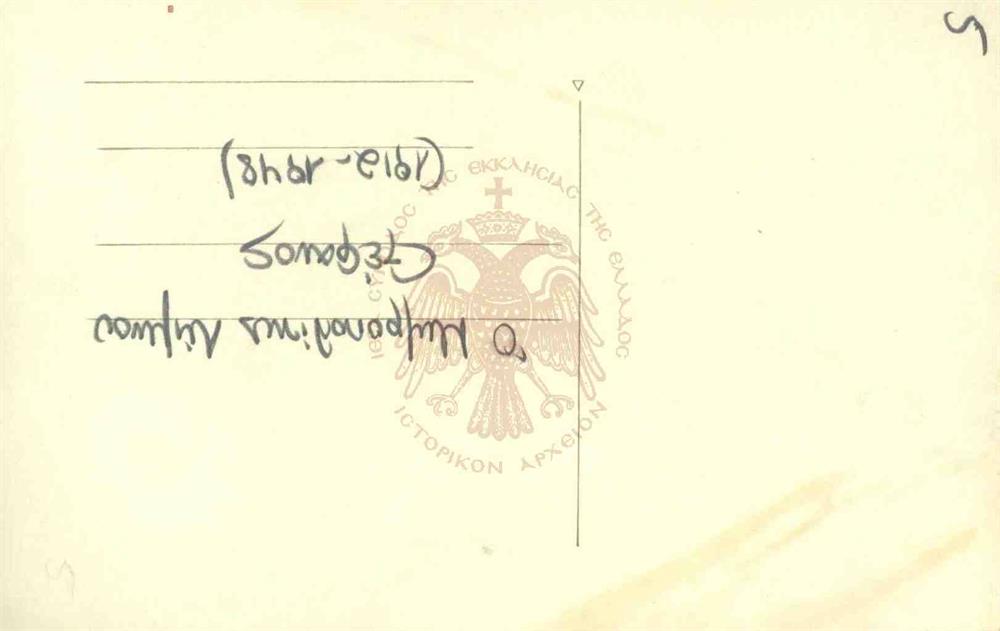 Ὁ Μητροπολίτης Λήμνου
Στέφανος
(1912-1948)
5
ΙΕΡΑ ΣΥΝΟΔΟΣ ΤΗΣ ΕΚΚΛΗΣΙΑΣ ΤΗΣ ΕΛΛΑΔΟΣ
ΙΣΤΟΡΙΚΟΝ ΑΡΧΕΙΟΝ